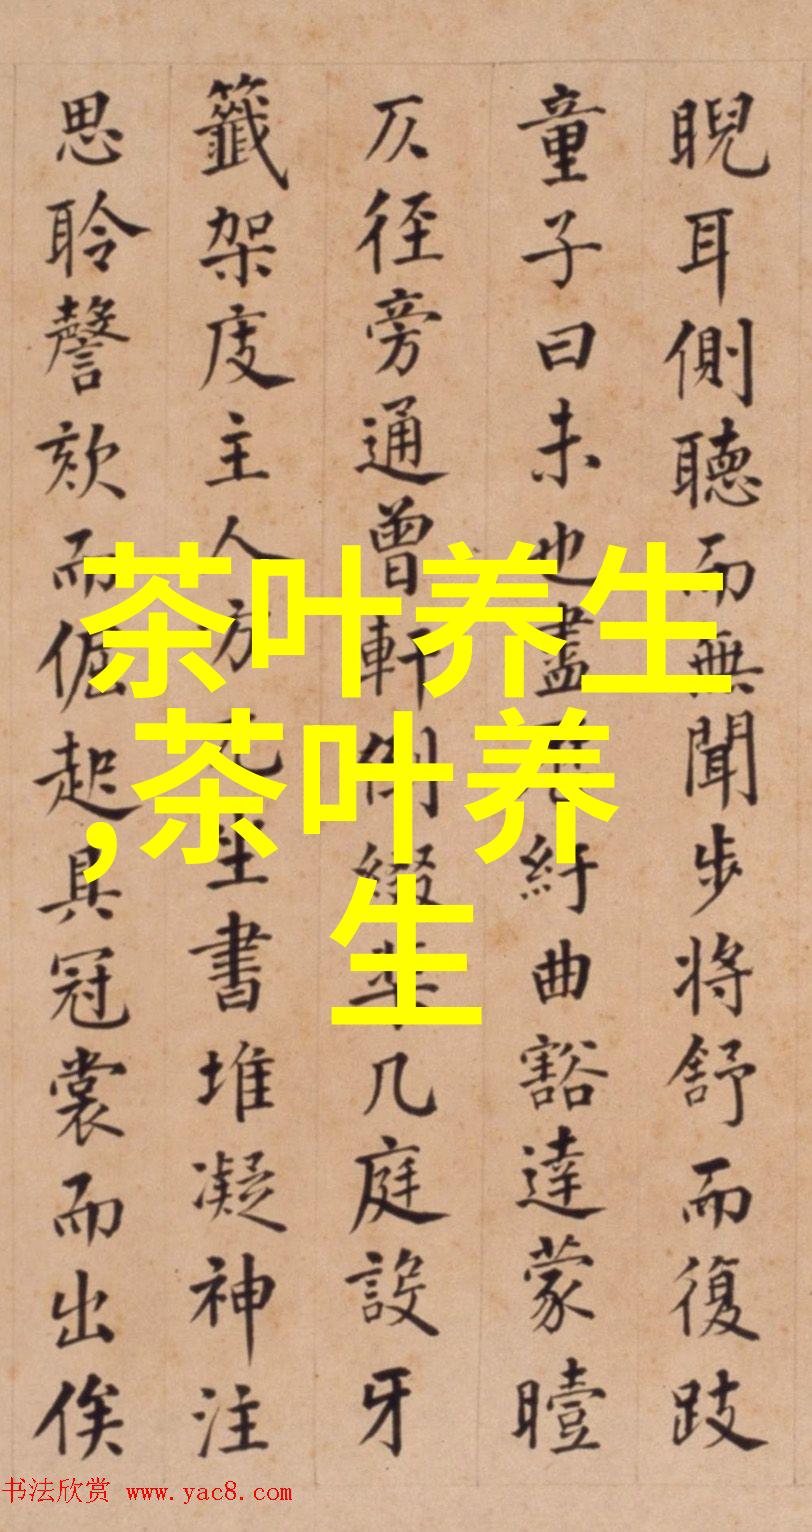 睨耳側聽而無聞步將舒而復跂
童子曰未也盡紆曲豁達蒙曀
仄徑旁通曾軒倒綴几庭設牙
籤架庋主人方兀坐書堆凝神注
思聆謦欬而倔起具冠裳而出俟
茶叶养生
,茶叶养
生
书法欣赏 www.yac8.com